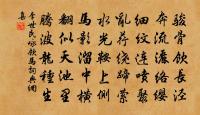 駿骨飲長涇
奔流灑絡纓
細紋連噴聚
亂荇繞蹄縈
水光鞍上側
馬影溜中橫
翻似天池里
騰波龍種生
李世民詠飲馬詞典網
集